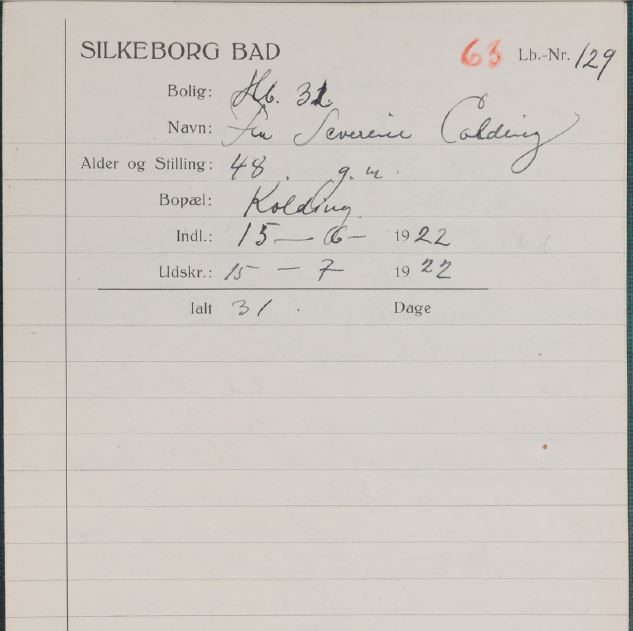 SILKEBORG BAD 63 Lb.-Nr. 129
Bolig: Hb. 31
Navn: Fru Severine Colding
Alder og Stilling: 48. g. m.
Bopæl: Kolding
Indl.: 15 — 6 — 1922
Udskr.: 15 — 7 1922
Ialt 31. Dage